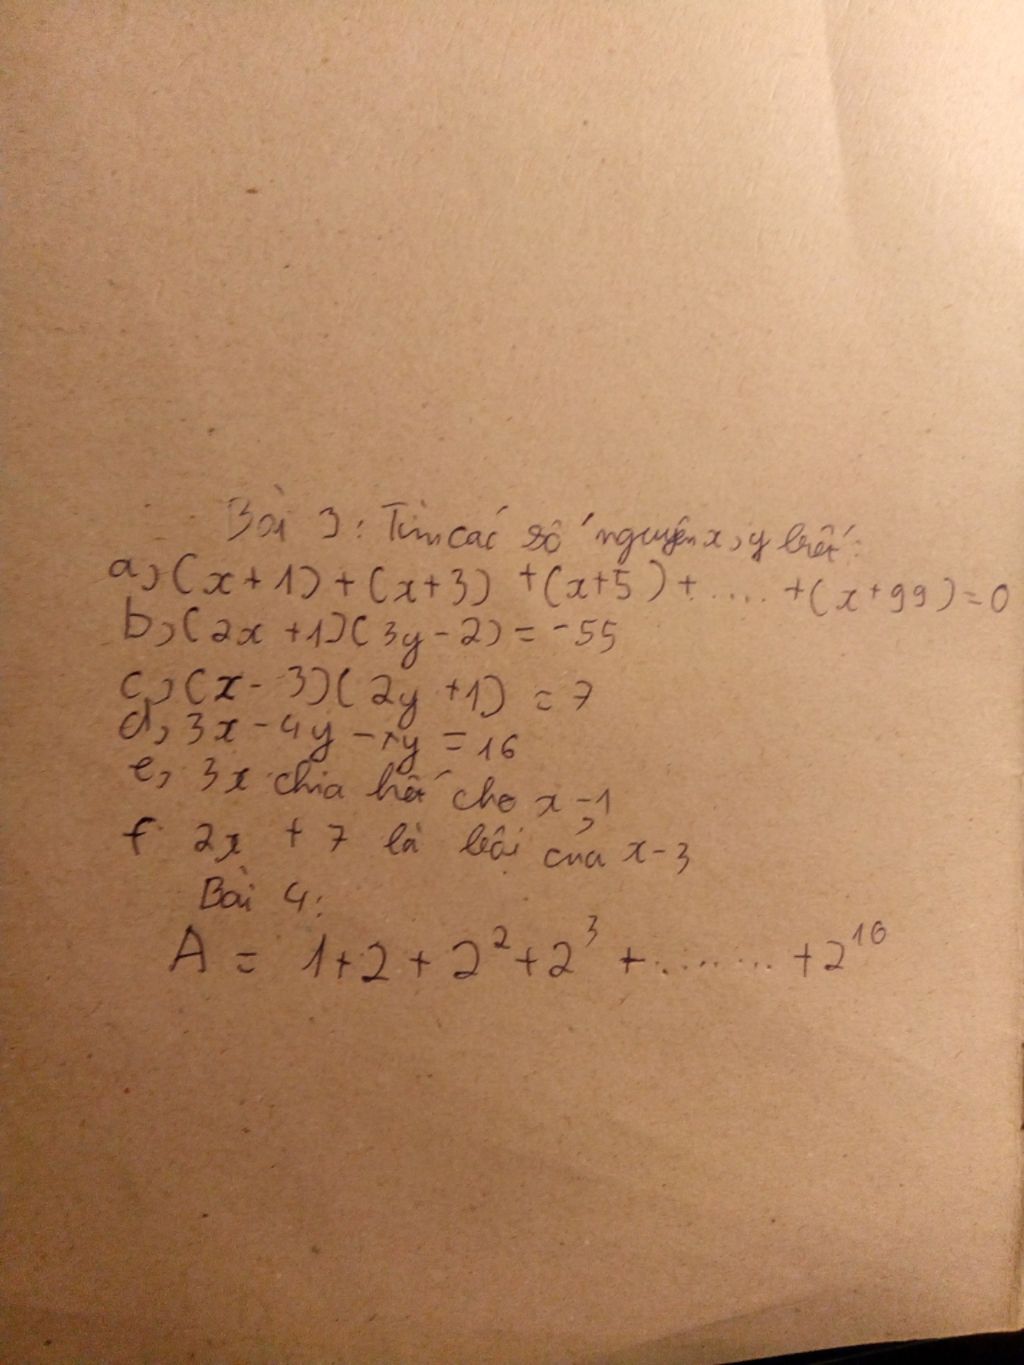 Bài 3: Tìm các số nguyên x, y biết:
a, (x+1)+(x+3)+(x+5)+....+(x+99)=0
b, (2x+1)(3y-2)=-55
c, (x-3)(2y+1)=7
d, 3x-4y-xy=16
e, 3x chia hết cho x-1
f 2x+7 là bội của x-3
Bài 4:
A = 1+2+2²+2³+........+2¹⁰